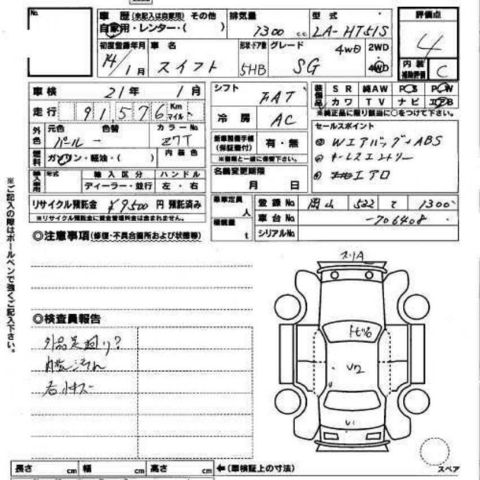 車歴 (未記入は自家用) その他
自家用・レンター( )
排気量 1300 cc
型式 LA-HT51S
評価点 4
初度登録年月 14/1月
車名 スイフト
形状ドア数 5HB
グレード SG
4WD 2WD
4WD
内装 補助評価 C
車検 21年 1月
走行 91576 Km マイル
シフト FAT
冷房 AC
装備品 SR 純AW PS PW
カワ TV ナビ エアB
※純正品に限り該当に○をつけて下さい。
外色 元色 パール 色替 カラーNo Z7T
燃料 ガソリン・軽油・( )
内装色
輸入車用 輸入区分 ハンドル
ディーラー・並行 左・右
(保証書付) 有・無
※書類と一緒に保管下さい。
名義変更期限
月 日
セールスポイント
Wエアバッグ/ABS
キーレスエントリー
エアロ
リサイクル預託金 ¥9,500円 預託済み
※リサイクル預託金に資金管理料金は含まれません。
乗車定員 人
積載量 t
登録No 岡山 522 て 1300
車台No -706408
シリアルNo
◎注意事項(修復・不具合箇所および状態等)
※ご記入の際はボールペンで強くご記入下さい。
◎検査員報告
スリA
U2
U1
長さ cm 幅 cm 高さ cm ←(車検証上の寸法)
スペア